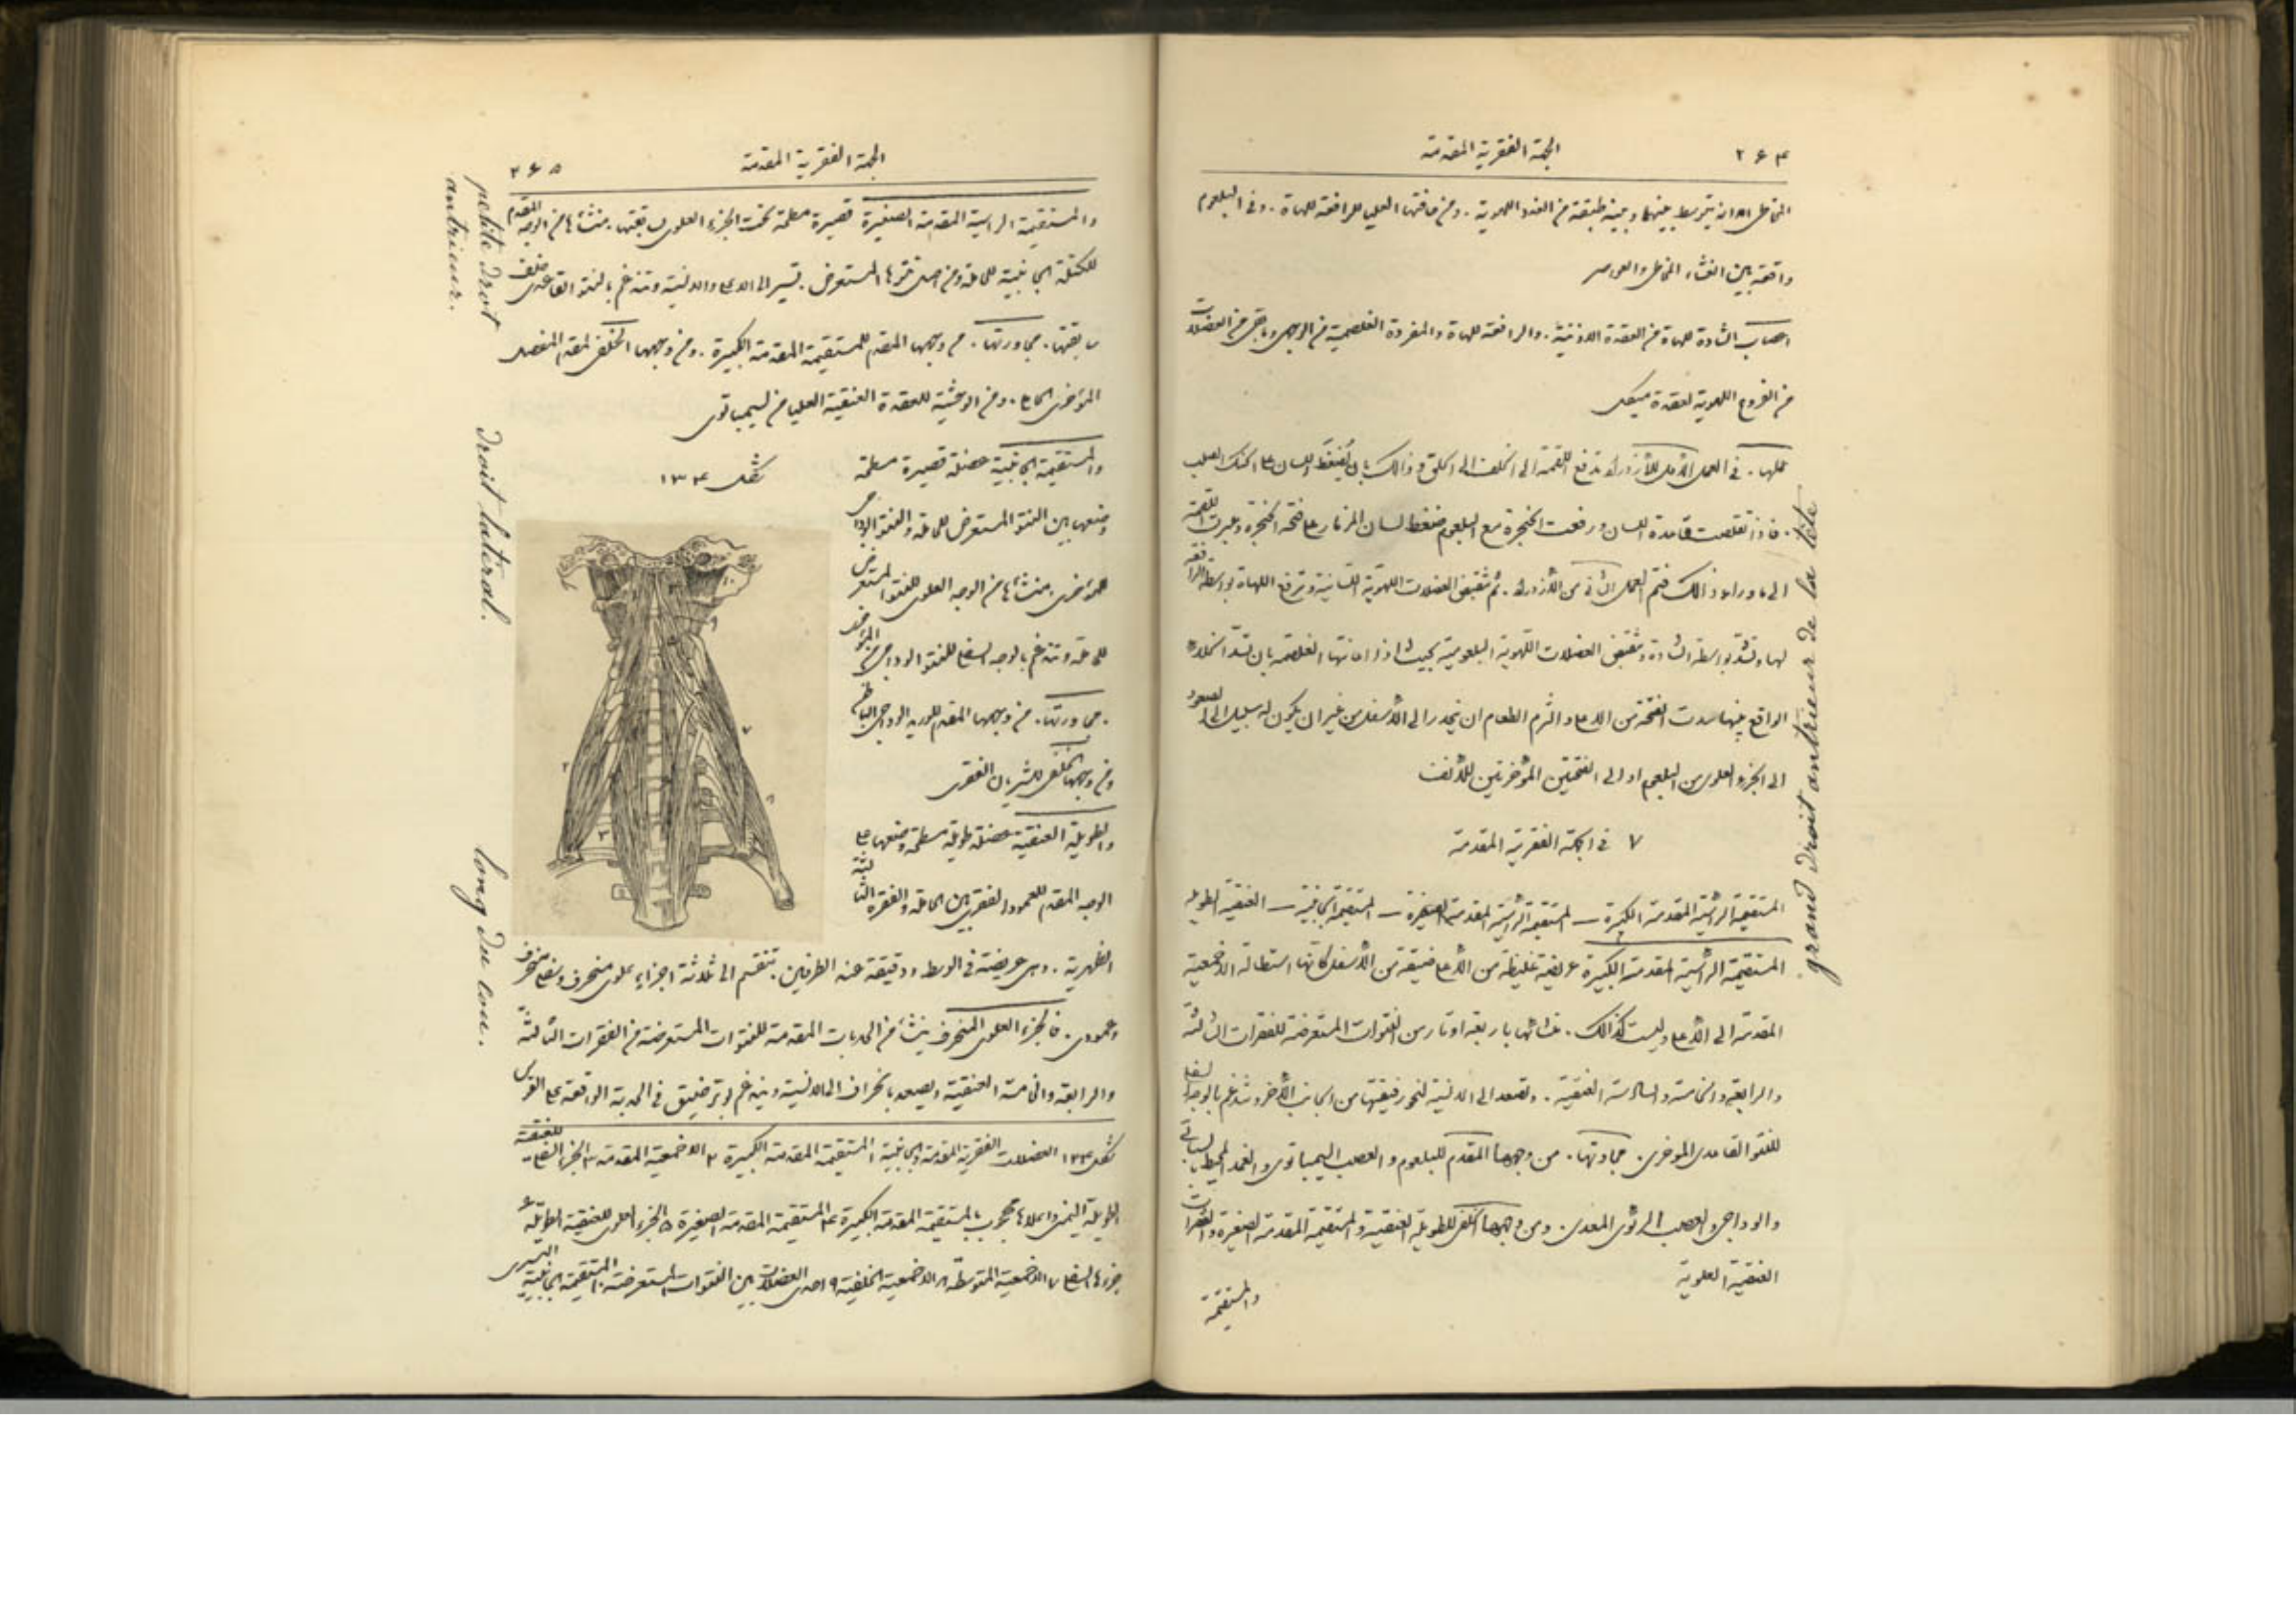 ٢٦٤
الجهة الفقرية المقدمة
المخاطى الا انه يتوسط بينهما وبينه طبقة من الغدد اللهوية . ومن حافتها العليا للرافعة للهاة . وفى البلعوم
واقعة بين الغشاء المخاطى والعواصر
اعصاب الشادة للهاة من العقدة الاذنية . والرافعة للهاة والمفردة الغلصمية من الوجهى وما بقى من العضلات
من الفروع اللهوية لعقدة ميكل
عملها . فى العمل الأول للأزدراد تدفع اللقمة الى الخلف الى الحلق وذالك بان يضغط اللسان على الحنك الصلب
. فاذا تقلصت قاعدة اللسان ورفعت الحنجرة مع البلعوم ضغط لسان المزمار على فتحة الحنجرة وعبرت اللقمة
الى ما وراء ذالك فتم العمل الثانى من الأزدراد . ثم تنقبض العضلات اللهوية اللسانية وترفع اللهاة بواسطة الرافعة
لها وتشد بواسطة الشادة وتنقبض العضلات اللهوية البلعومية بحيث اذا اعانتها الغلصمة بان تسد الخلاء
الواقع بينها سدت الفتحة من الاعلى والتزم الطعام ان ينحدر الى الأسفل من غير ان يكون له سبيل الى الصعود
الى الجزء العلوى من البلعوم او الى الفتحتين المؤخرتين للأنف
٧ فى الجهة الفقرية المقدمة
المستقيمة الرأسية المقدمة الكبيرة — المستقيمة الرأسية المقدمة الصغيرة — المستقيمة الجانبية — العنقية الطويلة
المستقيمة الرأسية المقدمة الكبيرة عريضة غليظة من الأعلى ضيقة من الأسفل كانها استطالة الاخمعية
المقدمة الى الأعلى وليست كذالك . منشائها باربعة اوتار من النتوات المستعرضة للفقرات الثالثة
والرابعة والخامسة والسادسة العنقية . وتصعد الى الانسية لنحو رفيقتها من الجانب الأخر وتندغم بالوجه السفلى
للنتو القاعدى المؤخرى . مجاورتها . من وجهها المقدم للبلعوم والعصب السيمباتوى والغمد المحيط بالسباتى
والوداجى والعصب الرئوى المعدى . ومن وجهها الخلفى للطويلة العنقية والمستقيمة المقدمة الصغيرة والفقرات
العنقية العلوية
والمستقيمة
grand droit antrieur de la tête
الجهة الفقرية المقدمة
٢٦٥
والمستقيمة الراسية المقدمة الصغيرة قصيرة مسطحة تحت الجزء العلوى لسابقتها . منشائها من الوجه المقدم
للكتلة الجانبية للحاملة ومن اصل نتوها المستعرض . تسير الى الاعلى والانسية وتندغم بالنتو القاعدى خلف
سابقتها . مجاورتها . من وجهها المقدم للمستقيمة المقدمة الكبيرة . ومن وجهها الخلفى لمقدم المفصل
المؤخرى الحاملى . ومن الوحشية للعقدة العنقية العليا من السيمباتوى
والمستقيمة الجانبية عضلة قصيرة مسطحة
وضعها بين النتو المستعرض للحاملة والنتو الوداجى
المؤخرى . منشائها من الوجه العلوى للنتو المستعرض
للحاملة وتندغم بالوجه السفلى للنتو الوداجى المؤخرى
. مجاورتها . من وجهها المقدم للوريد الوداجى الباطن
ومن وجهها الخلفى للشريان الفقرى
والطويلة العنقية عضلة طويلة مسطحة وضعها على
الوجه المقدم للعمود الفقرى بين الحاملة والفقرة الثالثة
شكل ١٣٤
الظهرية . وهى عريضة فى الوسط ودقيقة عند الطرفين . تنقسم الى ثلاثة اجزاء علوى منحرف وسفلى منحرف
وعمودى . فالجزء العلوى المنحرف ينشاء من الحدبات المقدمة للنتوات المستعرضة من الفقرات الثالثة
والرابعة والخامسة العنقية ويصعد بانحراف الى الانسية ويندغم بوتر ضيق فى الحدبة الواقعة على القوس
شكل ١٣٤ العضلات الفقرية المقدمة والجانبية ١ المستقيمة المقدمة الكبيرة ٢ الاخمعية المقدمة ٣ الجزء السفلى للعنقية
الطويلة اليمنى واعلاها محجوب بالمستقيمة المقدمة الكبيرة ٤ المستقيمة المقدمة الصغيرة ٥ الجزء العلوى للعنقية الطويلة ٦
جزءها السفلى ٧ الاخمعية المتوسطة ٨ الاخمعية الخلفية ٩ احدى العضلات بين النتوات المستعرضة ١٠ المستقيمة الجانبية اليسرى
petite droit
antrieur.
droit lateral.
long du cou.